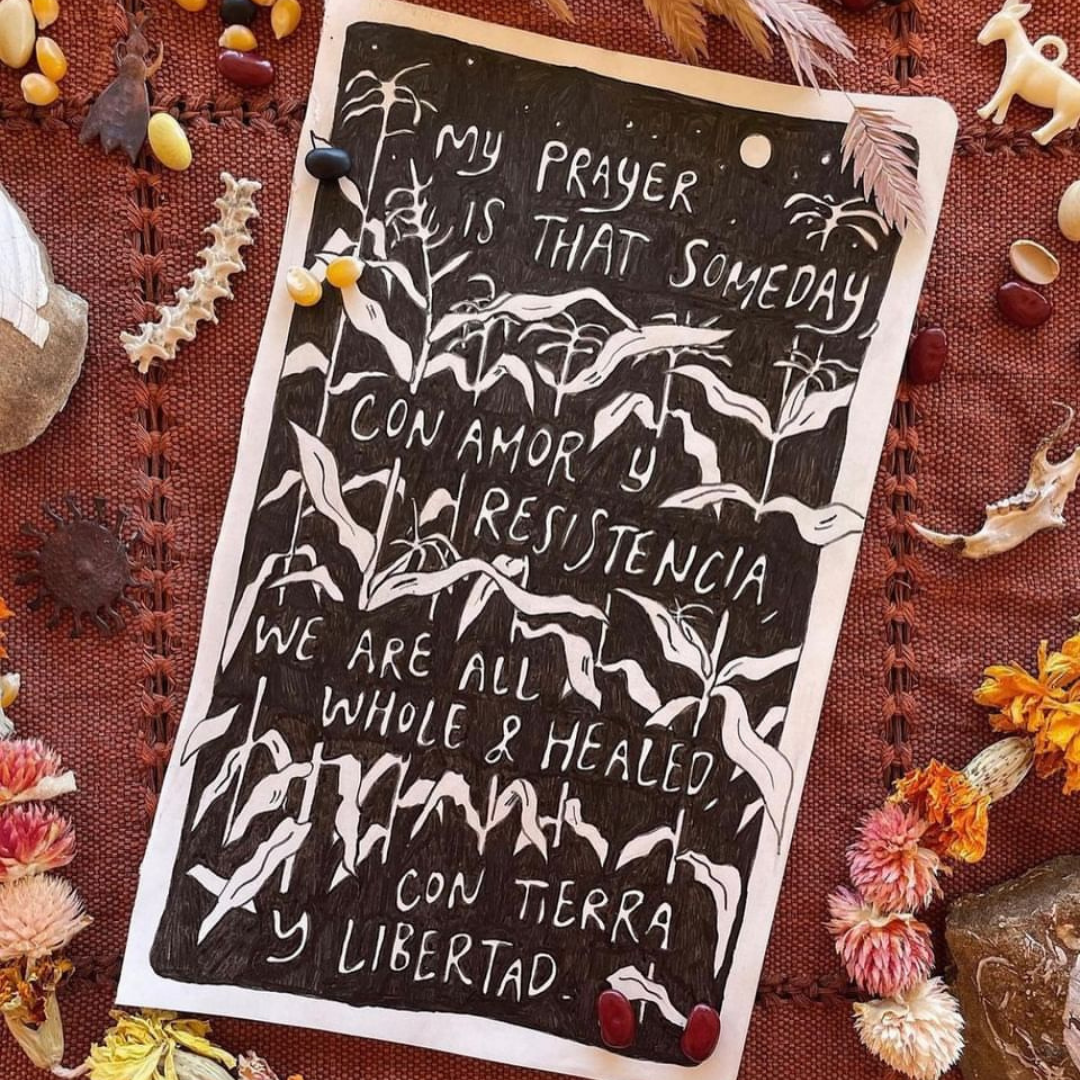 MY PRAYER
IS THAT SOMEDAY,
CON AMOR Y
RESISTENCIA,
WE ARE ALL
WHOLE & HEALED,
CON TIERRA
Y LIBERTAD.